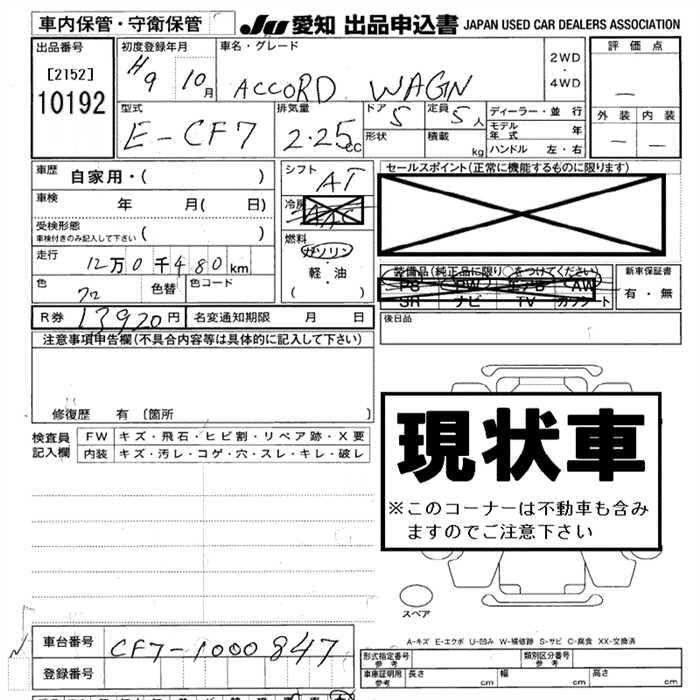 車内保管・守衛保管
JU 愛知 出品申込書 JAPAN USED CAR DEALERS ASSOCIATION
出品番号
[2152]
10192
初度登録年月
H9 10月
車名・グレード
ACCORD WAGN
2WD
・
4WD
評価点
—
外装 内装
— —
型式
E-CF7
排気量
2.25cc
ドア 5
形状
定員 5人
積載 kg
ディーラー・並行
モデル年式 年
ハンドル 左・右
車歴 自家用・( )
車検 年 月( 日)
受検形態
車検付きのみ記入して下さい ( )
走行 12万0千480km
色 クロ
色替
色コード
シフト AT
冷房
燃料
ガソリン
・
軽・油
( )
セールスポイント(正常に機能するものに限ります)
装備品(純正品に限り○をつけてください)
PS PW エアB AW
SR ナビ TV カワシート
新車保証書
有・無
R券 13920円
名変通知期限 月 日
後日品
注意事項申告欄(不具合内容等は具体的に記入して下さい)
修復歴 有〔箇所 〕
検査員記入欄
FW キズ・飛石・ヒビ割・リペア跡・X要
内装 キズ・汚レ・コゲ・穴・スレ・キレ・破レ
現状車
※このコーナーは不動車も含み
ますのでご注意下さい
スペア
A-キズ E-エクボ U-凹み W-補修跡 S-サビ C-腐食 XX-交換済
車台番号 CF7-1000847
登録番号
形式指定番号
参考
類別区分番号
参考
車庫証明用
参考
長さ cm
幅 cm
高さ cm